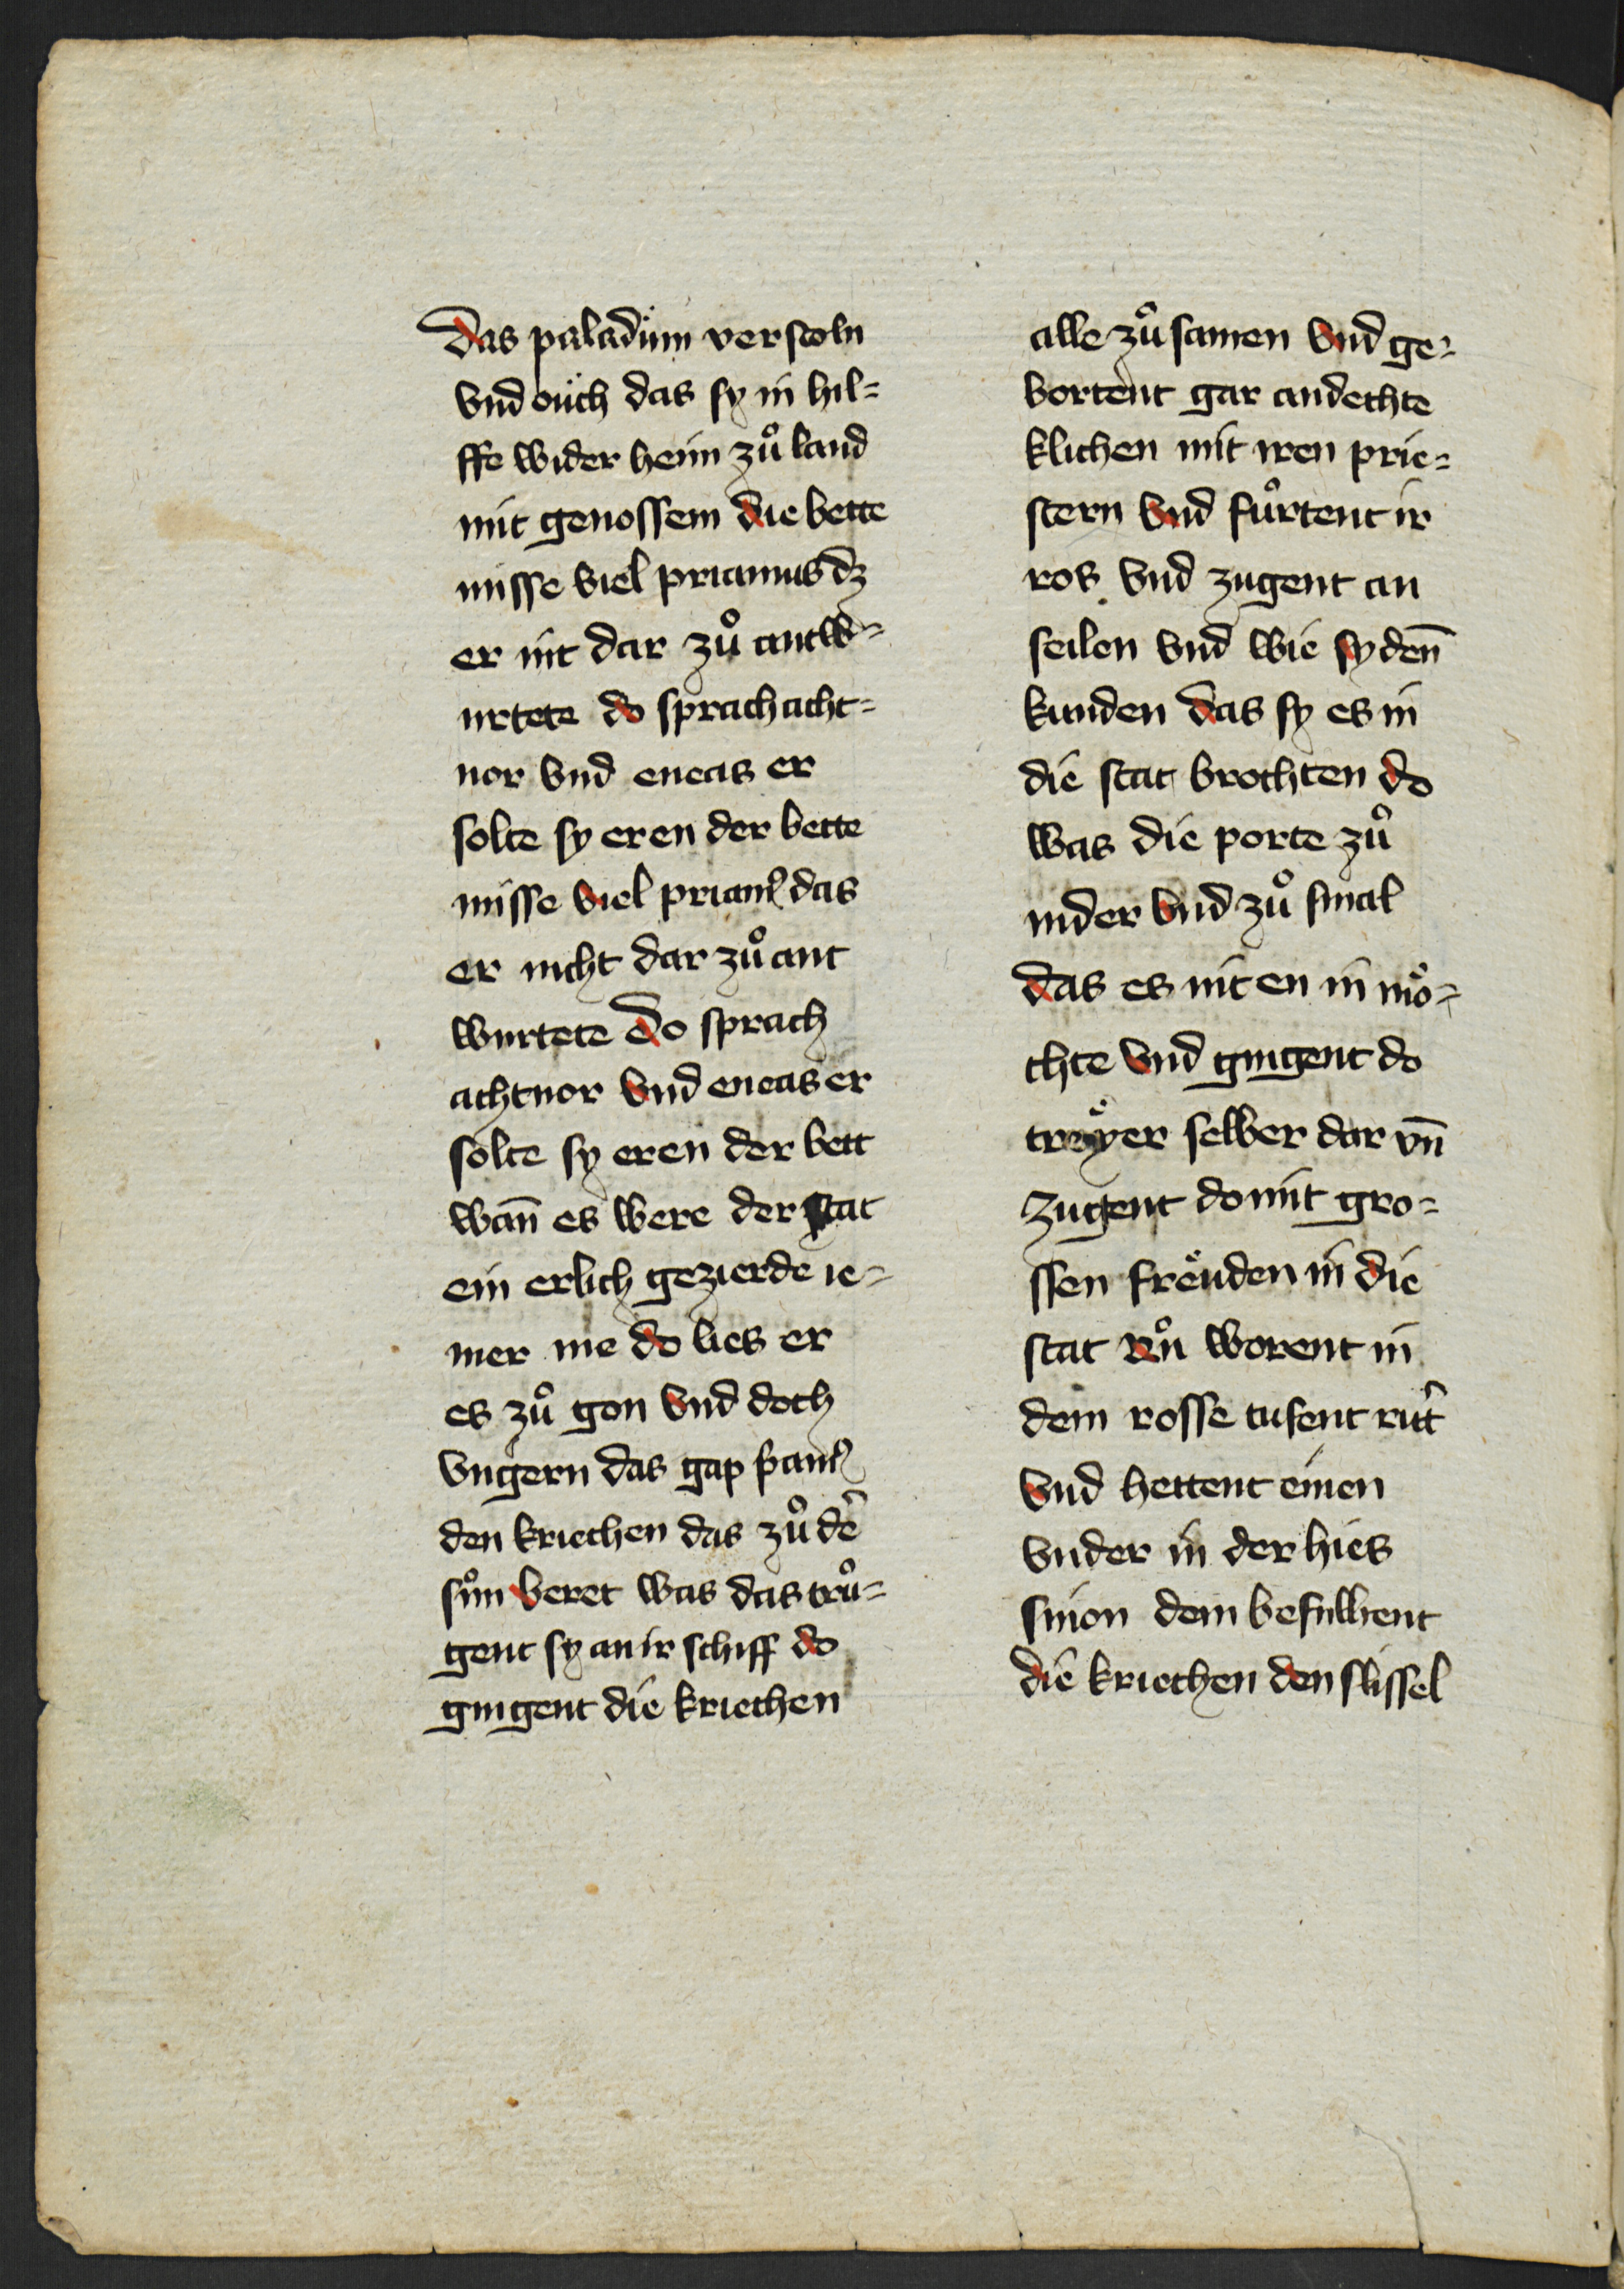 das paladüm verstoln
vnd oüch das sy in hil=
ffe wider heim zuͦ land
mit genossem die bette
misse viel priamus dz
er nit dar zuͦ antw=
urtete do sprach acht=
nor vnd eneas er
solte sy eren der bette
misse viel priamꝰ das
er nicht dar zuͦ ant
wurtete do sprach
achtnor vnd eneas er
solte sy eren der bett
wan̄ es were der stat
ein erlich gezierde ie=
mer me do lies er
es zuͦ gon vnd doch
vngern das gap p̱amꝰ
den kriechen das zuͦ dē
suͦm beret was das truͦ=
gent sy an ir schiff do
gingent die kriechen
alle zuͦ samen vnd ge=
bortent gar andechte
klichen mit iren prie=
stern vnd fuͦrtent ir
ros vnd zugent an
seilen vnd wie sy den̄
kunden das sy es in
die stat brochten do
was die porte zuͦ
nider vnd zuͦ smal
das es nit en in moͤ=
chte vnd gingent do
troÿer selber dar vn̄
zugent do mit gro=
ssen freuͤden in die
stat Nuͦ worent in
dem rosse tusent ritt̾
vnd hettent einen
vnder in der hies
sinon dem befulhent
die kriechen den slissel